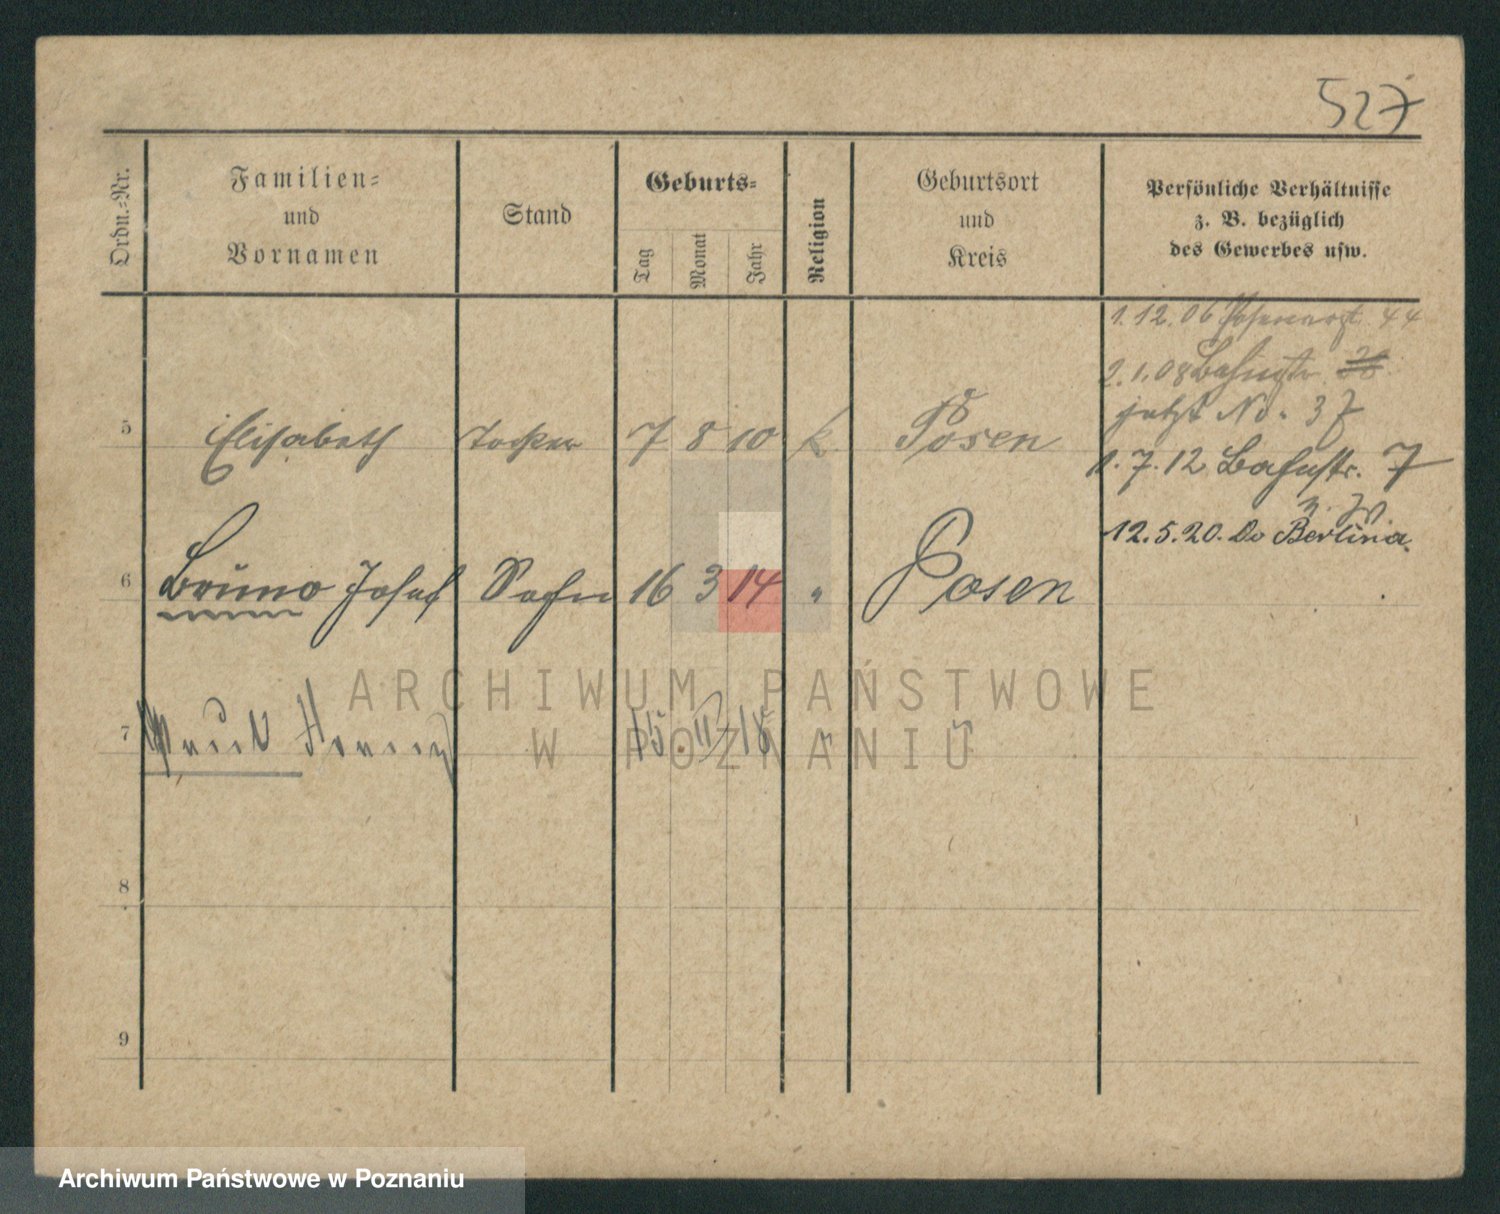 527
Ordn.-Nr.
Familien-
und
Vornamen
Stand
Geburts-
Tag
Monat
Jahr
Religion
Geburtsort
und
Kreis
Persönliche Verhältnisse
z. B. bezüglich
des Gewerbes usw.
1.12.06 44
2.1.08 Bahnstr.
jetzt No. 37
5 Elisabeth Tochter 7 8 10 k. Posen
1.7.12 Bahnstr. 7
12.5.20. Do Berlina.
6 Bruno Josef Sohn 16 3 14 " Posen
7 15. II 18 " "
8
9
ARCHIWUM PAŃSTWOWE
W POZNANIU
Archiwum Państwowe w Poznaniu